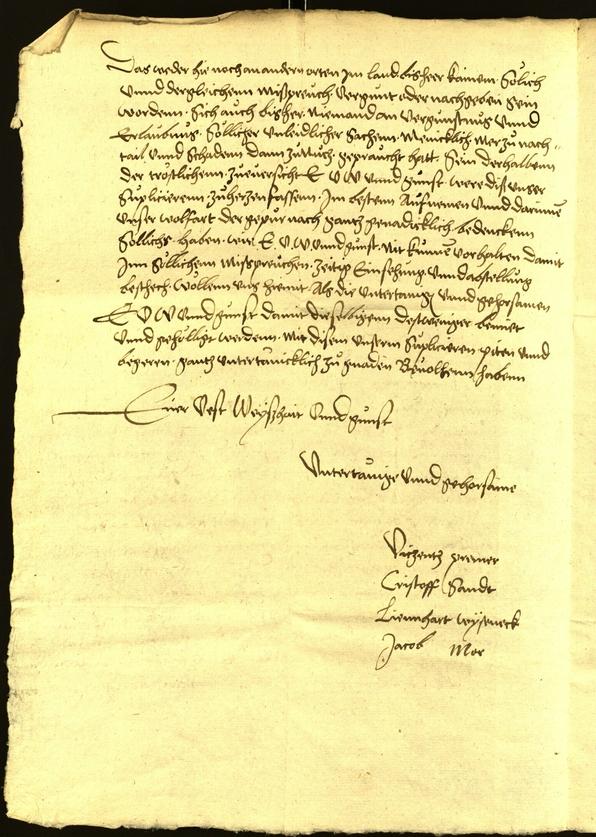 Das weder hie noch an andern orten im land bisheer kainem Sölich
unnd dergleichenn misspreuch vergunt oder nachgeben sein
wordenn Sich auch bisher Niemand an vergunstnus unnd
Erlaubnus Söllicher unleidlicher sachenn Menicklich mer zu nach-
tail unnd schadenn dann zu Nutz gepraucht hatt Sein derhalbenn
der trostlichenn zuversicht E V W unnd gunst were diss unser
Suplicierenn zu herzen fassenn Im bestenn Aufnemen unnd darinne
unser wolfart der gepur nach gantz genedicklich bedenckenn
Sollichs haben wir E V W unnd gunst nit kunne vorhalten damit
Inn söllichenn misspreuchen zeitig Einsehung unnd abstellung
bescheeh wöllenn uns hiemit Als die untertanig unnd gehorsamen
E V W unnd gunst damit dieselbigenn destweniger bemuet
unnd gehölligt werdenn mit disem unserm Suplicieren piten unnd
begeren gantz untertanicklich zu gnaden Bevolhenn habenn
Euer Vest Weyshait unnd gunst
Untertanige unnd gehorsame
Vizentz premer
Cristoff Sandt
Liennhart weyseneck
Jacob Mor